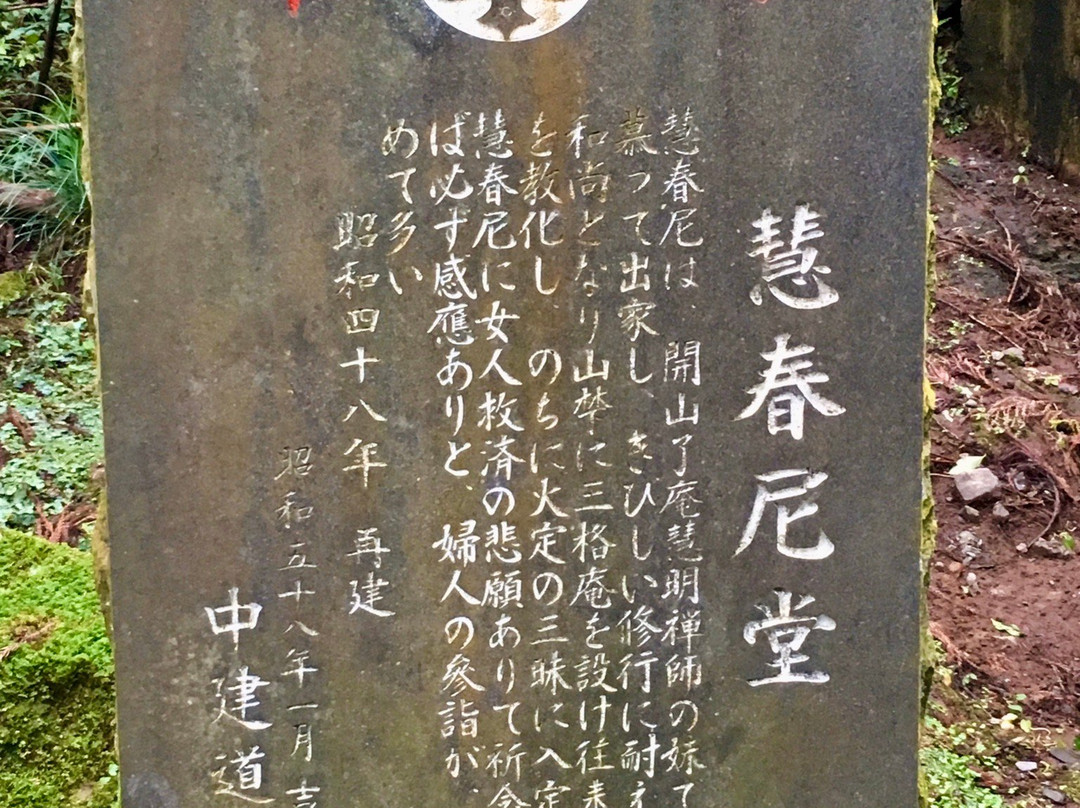 慧春尼堂
慧春尼は、開山了庵慧明禅師の妹で
慕って出家し、きびしい修行に耐え
和尚となり山麓に三格庵を設け往来
を教化し、のちに火定の三昧に入定
慧春尼に女人救済の悲願ありて祈念
ば必ず感應ありと、婦人の参詣が、
めて多い
昭和四十八年 再建
昭和五十八年一月 吉
中建道